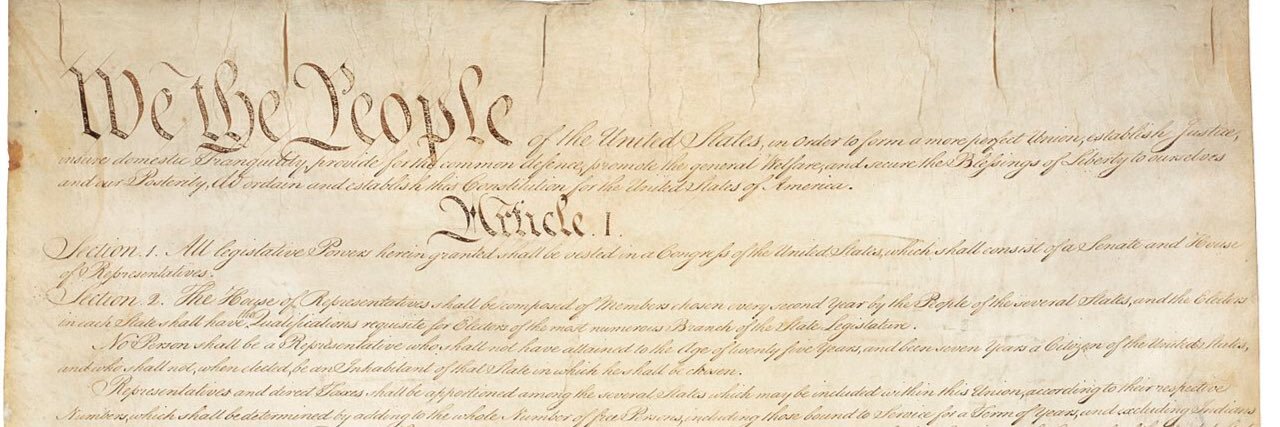 We the People of the United States, in Order to form a more perfect Union, establish Justice,
insure domestic Tranquility, provide for the common defence, promote the general Welfare, and secure the Blessings of Liberty to ourselves
and our Posterity, do ordain and establish this Constitution for the United States of America.
Article. I.
Section. 1. All legislative Powers herein granted shall be vested in a Congress of the United States, which shall consist of a Senate and House
of Representatives.
Section. 2. The House of Representatives shall be composed of Members chosen every second Year by the People of the several States, and the Electors
in each State shall have the Qualifications requisite for Electors of the most numerous Branch of the State Legislature.
No Person shall be a Representative who shall not have attained to the Age of twenty five Years, and been seven Years a Citizen of the United States,
and who shall not, when elected, be an Inhabitant of that State in which he shall be chosen.
Representatives and direct Taxes shall be apportioned among the several States which may be included within this Union, according to their respective
Numbers, which shall be determined by adding to the whole Number of free Persons, including those bound to Service for a Term of Years, and excluding Indians